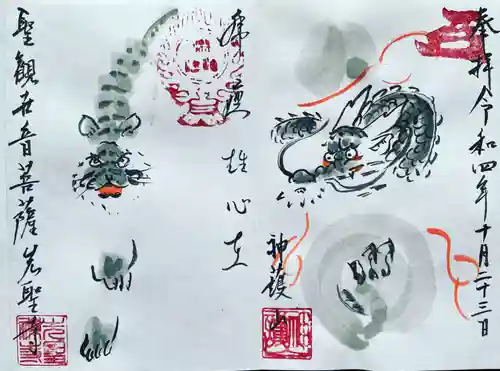 奉拝令和四年十月二十三日
神護山
雄心在
聖観世音菩薩先聖寺